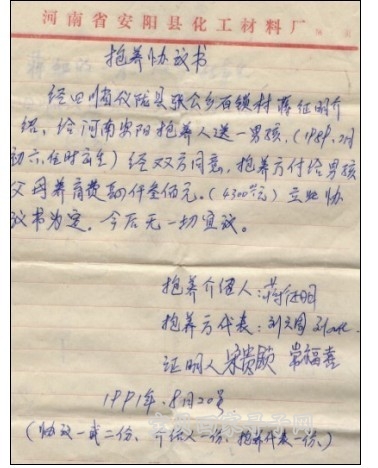 河南省安阳县化工材料厂
抱养协议书
经四川省仪陇县张公乡石领村蒋征明介
绍，给河南安阳抱养人送一男孩，(1989.2月
初六，住时亥生)经双方同意，抱养方付给男孩
父母养育费肆仟叁佰元。(4300元)立此协
议书为定，今后无一切宜议。
抱养介绍人：蒋征明
抱养方代表：刘
证明人 宋贵 常福喜
1991年.8月20号
(协议一式二份、介绍人一份、抱养代表一份、)